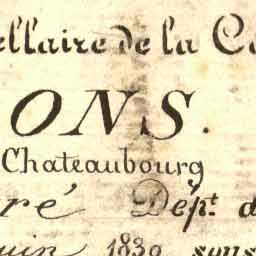 ellaire de la Co
ONS.
Chateaubourg
ré Dépt. d
uin 1839 sous